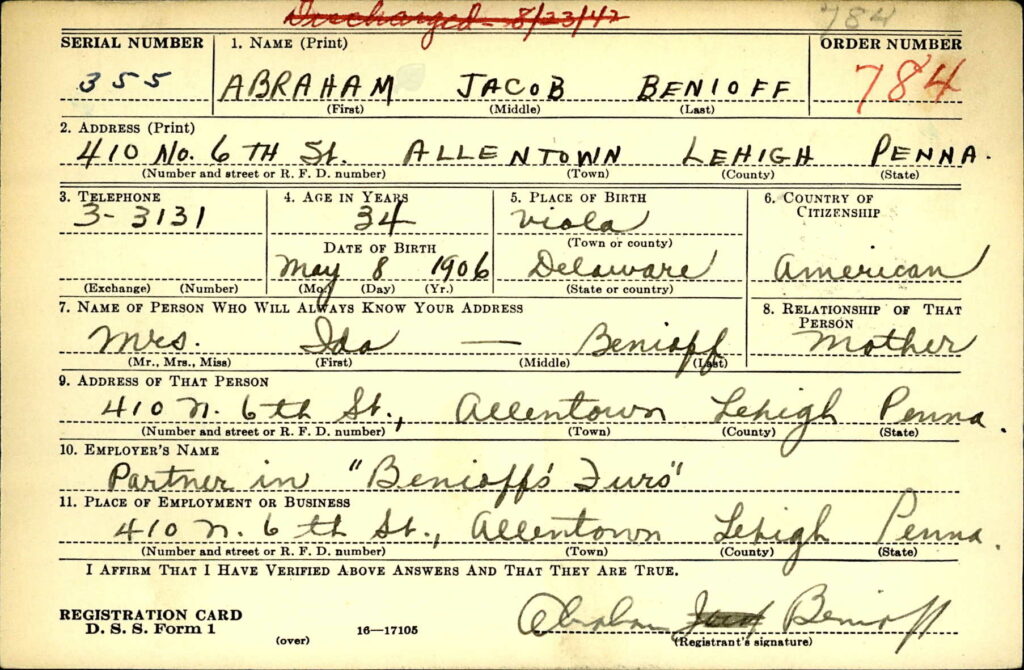 Discharged - 8/23/42 784
SERIAL NUMBER 1. NAME (Print) ORDER NUMBER
355 ABRAHAM JACOB BENIOFF 784
(First) (Middle) (Last)
2. ADDRESS (Print)
410 No. 6 TH St. ALLENTOWN LEHIGH PENNA.
(Number and street or R. F. D. number) (Town) (County) (State)
3. TELEPHONE 4. AGE IN YEARS 5. PLACE OF BIRTH 6. COUNTRY OF
CITIZENSHIP
3-3131 34 Viola
(Town or county)
DATE OF BIRTH
May 8 1906 Delaware American
(Exchange) (Number) (Mo.) (Day) (Yr.) (State or country)
7. NAME OF PERSON WHO WILL ALWAYS KNOW YOUR ADDRESS 8. RELATIONSHIP OF THAT
PERSON
Mrs. Ida — Benioff Mother
(Mr., Mrs., Miss) (First) (Middle) (Last)
9. ADDRESS OF THAT PERSON
410 N. 6th St., Allentown Lehigh Penna.
(Number and street or R. F. D. number) (Town) (County) (State)
10. EMPLOYER'S NAME
Partner in "Benioff's Furs"
11. PLACE OF EMPLOYMENT OR BUSINESS
410 N. 6th St., Allentown Lehigh Penna.
(Number and street or R. F. D. number) (Town) (County) (State)
I AFFIRM THAT I HAVE VERIFIED ABOVE ANSWERS AND THAT THEY ARE TRUE.
REGISTRATION CARD
D. S. S. Form 1
Abraham Benioff
(over) 16—17105 (Registrant's signature)